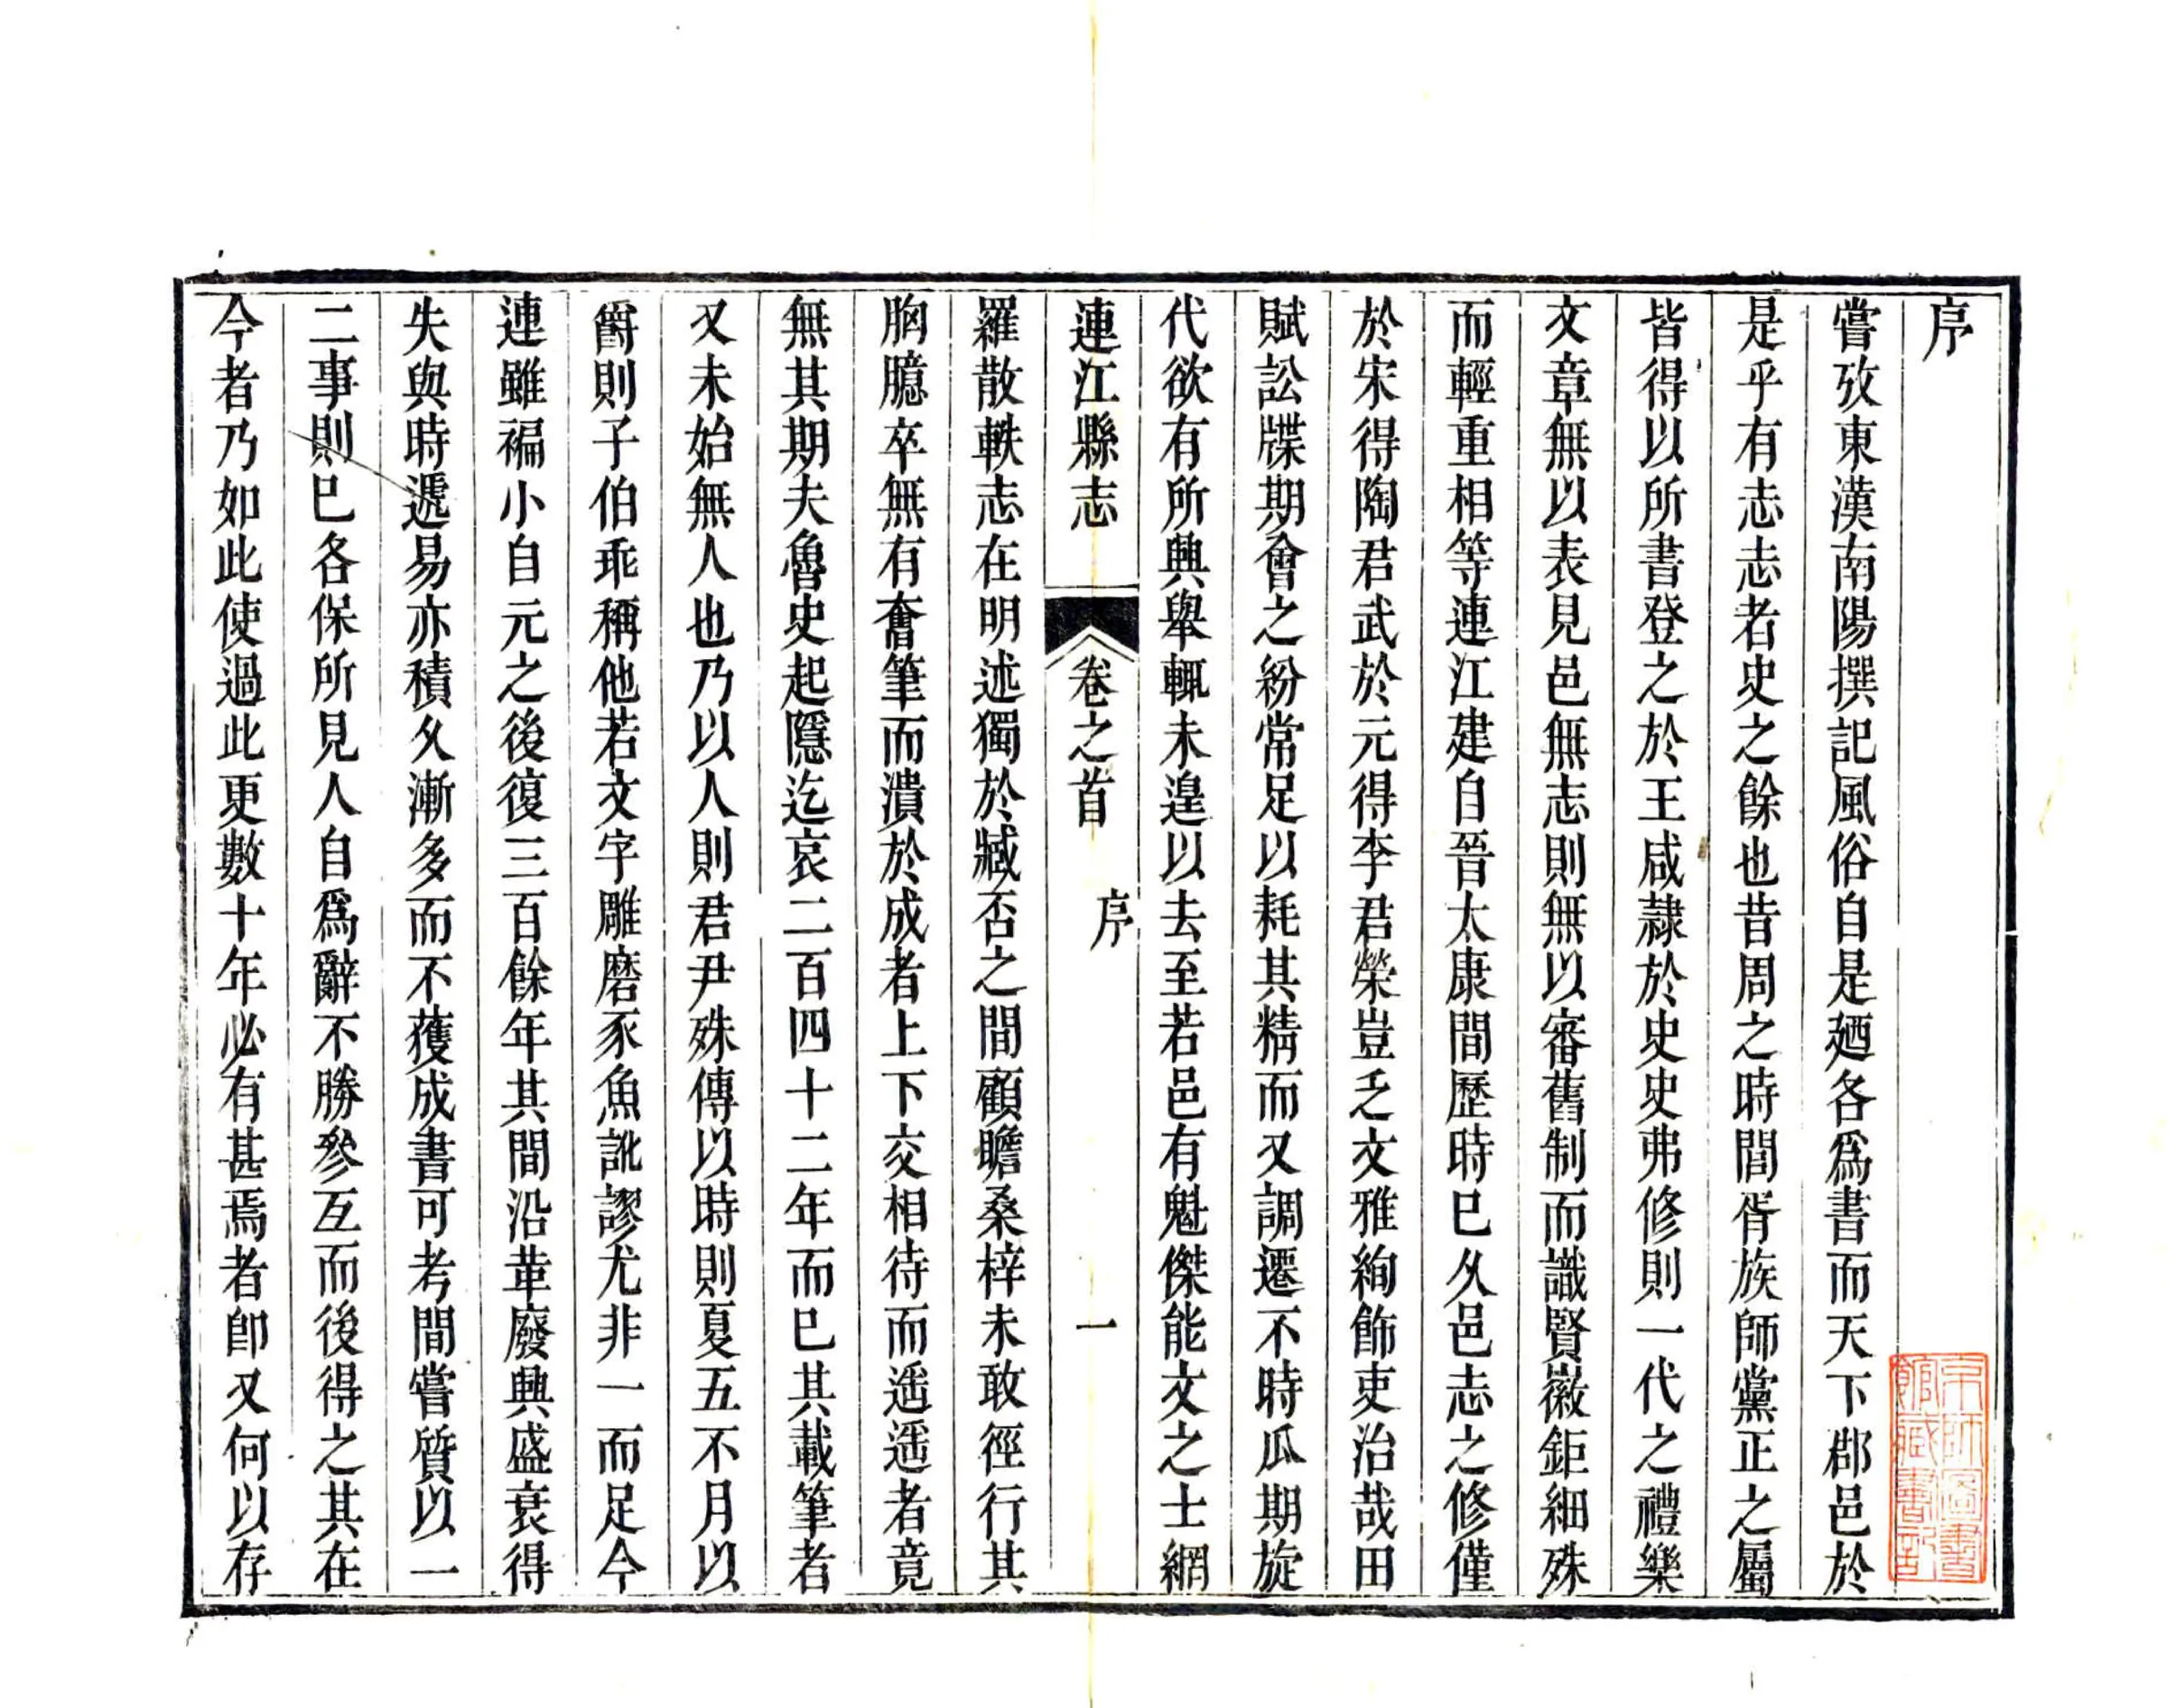 序
嘗攷東漢南陽撰記風俗自是廼各爲書而天下郡邑於
是乎有志志者史之餘也昔周之時閭胥族師黨正之屬
皆得以所書登之於王咸隷於史史弗修則一代之禮樂
文章無以表見邑無志則無以審舊制而識賢徽鉅細殊
而輕重相等連江建自晉太康間歷時巳久邑志之修僅
於宋得陶君武於元得李君榮豈乏文雅絢飾吏治哉田
賦訟牒期會之紛常足以耗其精而又調遷不時瓜期旋
代欲有所興舉輒未遑以去至若邑有魁傑能文之士網
連江縣志 卷之首 序 一
羅散軼志在明述獨於臧否之間顧瞻桑梓未敢徑行其
胸臆卒無有奮筆而潰於成者上下交相待而遥遥者竟
無其期夫魯史起隱迄哀二百四十二年而巳其載筆者
又未始無人也乃以人則君尹殊傳以時則夏五不月以
爵則子伯乖稱他若文字雕磨豕魚訛謬尤非一而足今
連雖褊小自元之後復三百餘年其間沿革廢興盛衰得
失與時遞易亦積久漸多而不獲成書可考間嘗質以一
二事則巳各保所見人自爲辭不勝參互而後得之其在
今者乃如此使過此更數十年必有甚焉者卽又何以存
京師圖書
館藏書記